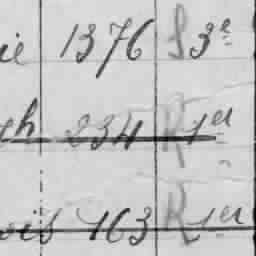 ie 1376 S 3e
ch 234 R 1er
ois 163 R 1er